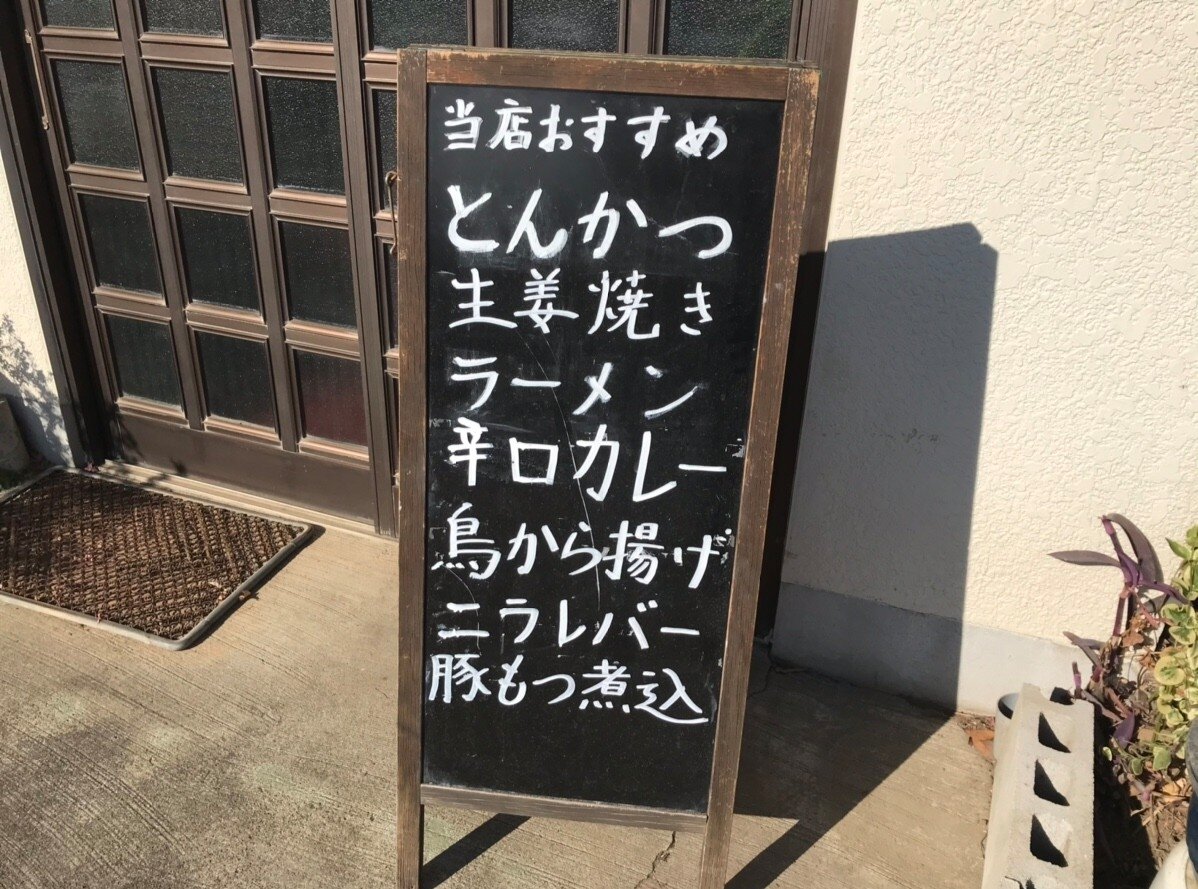 当店おすすめ
とんかつ
生姜焼き
ラーメン
辛口カレー
鳥から揚げ
ニラレバー
豚もつ煮込